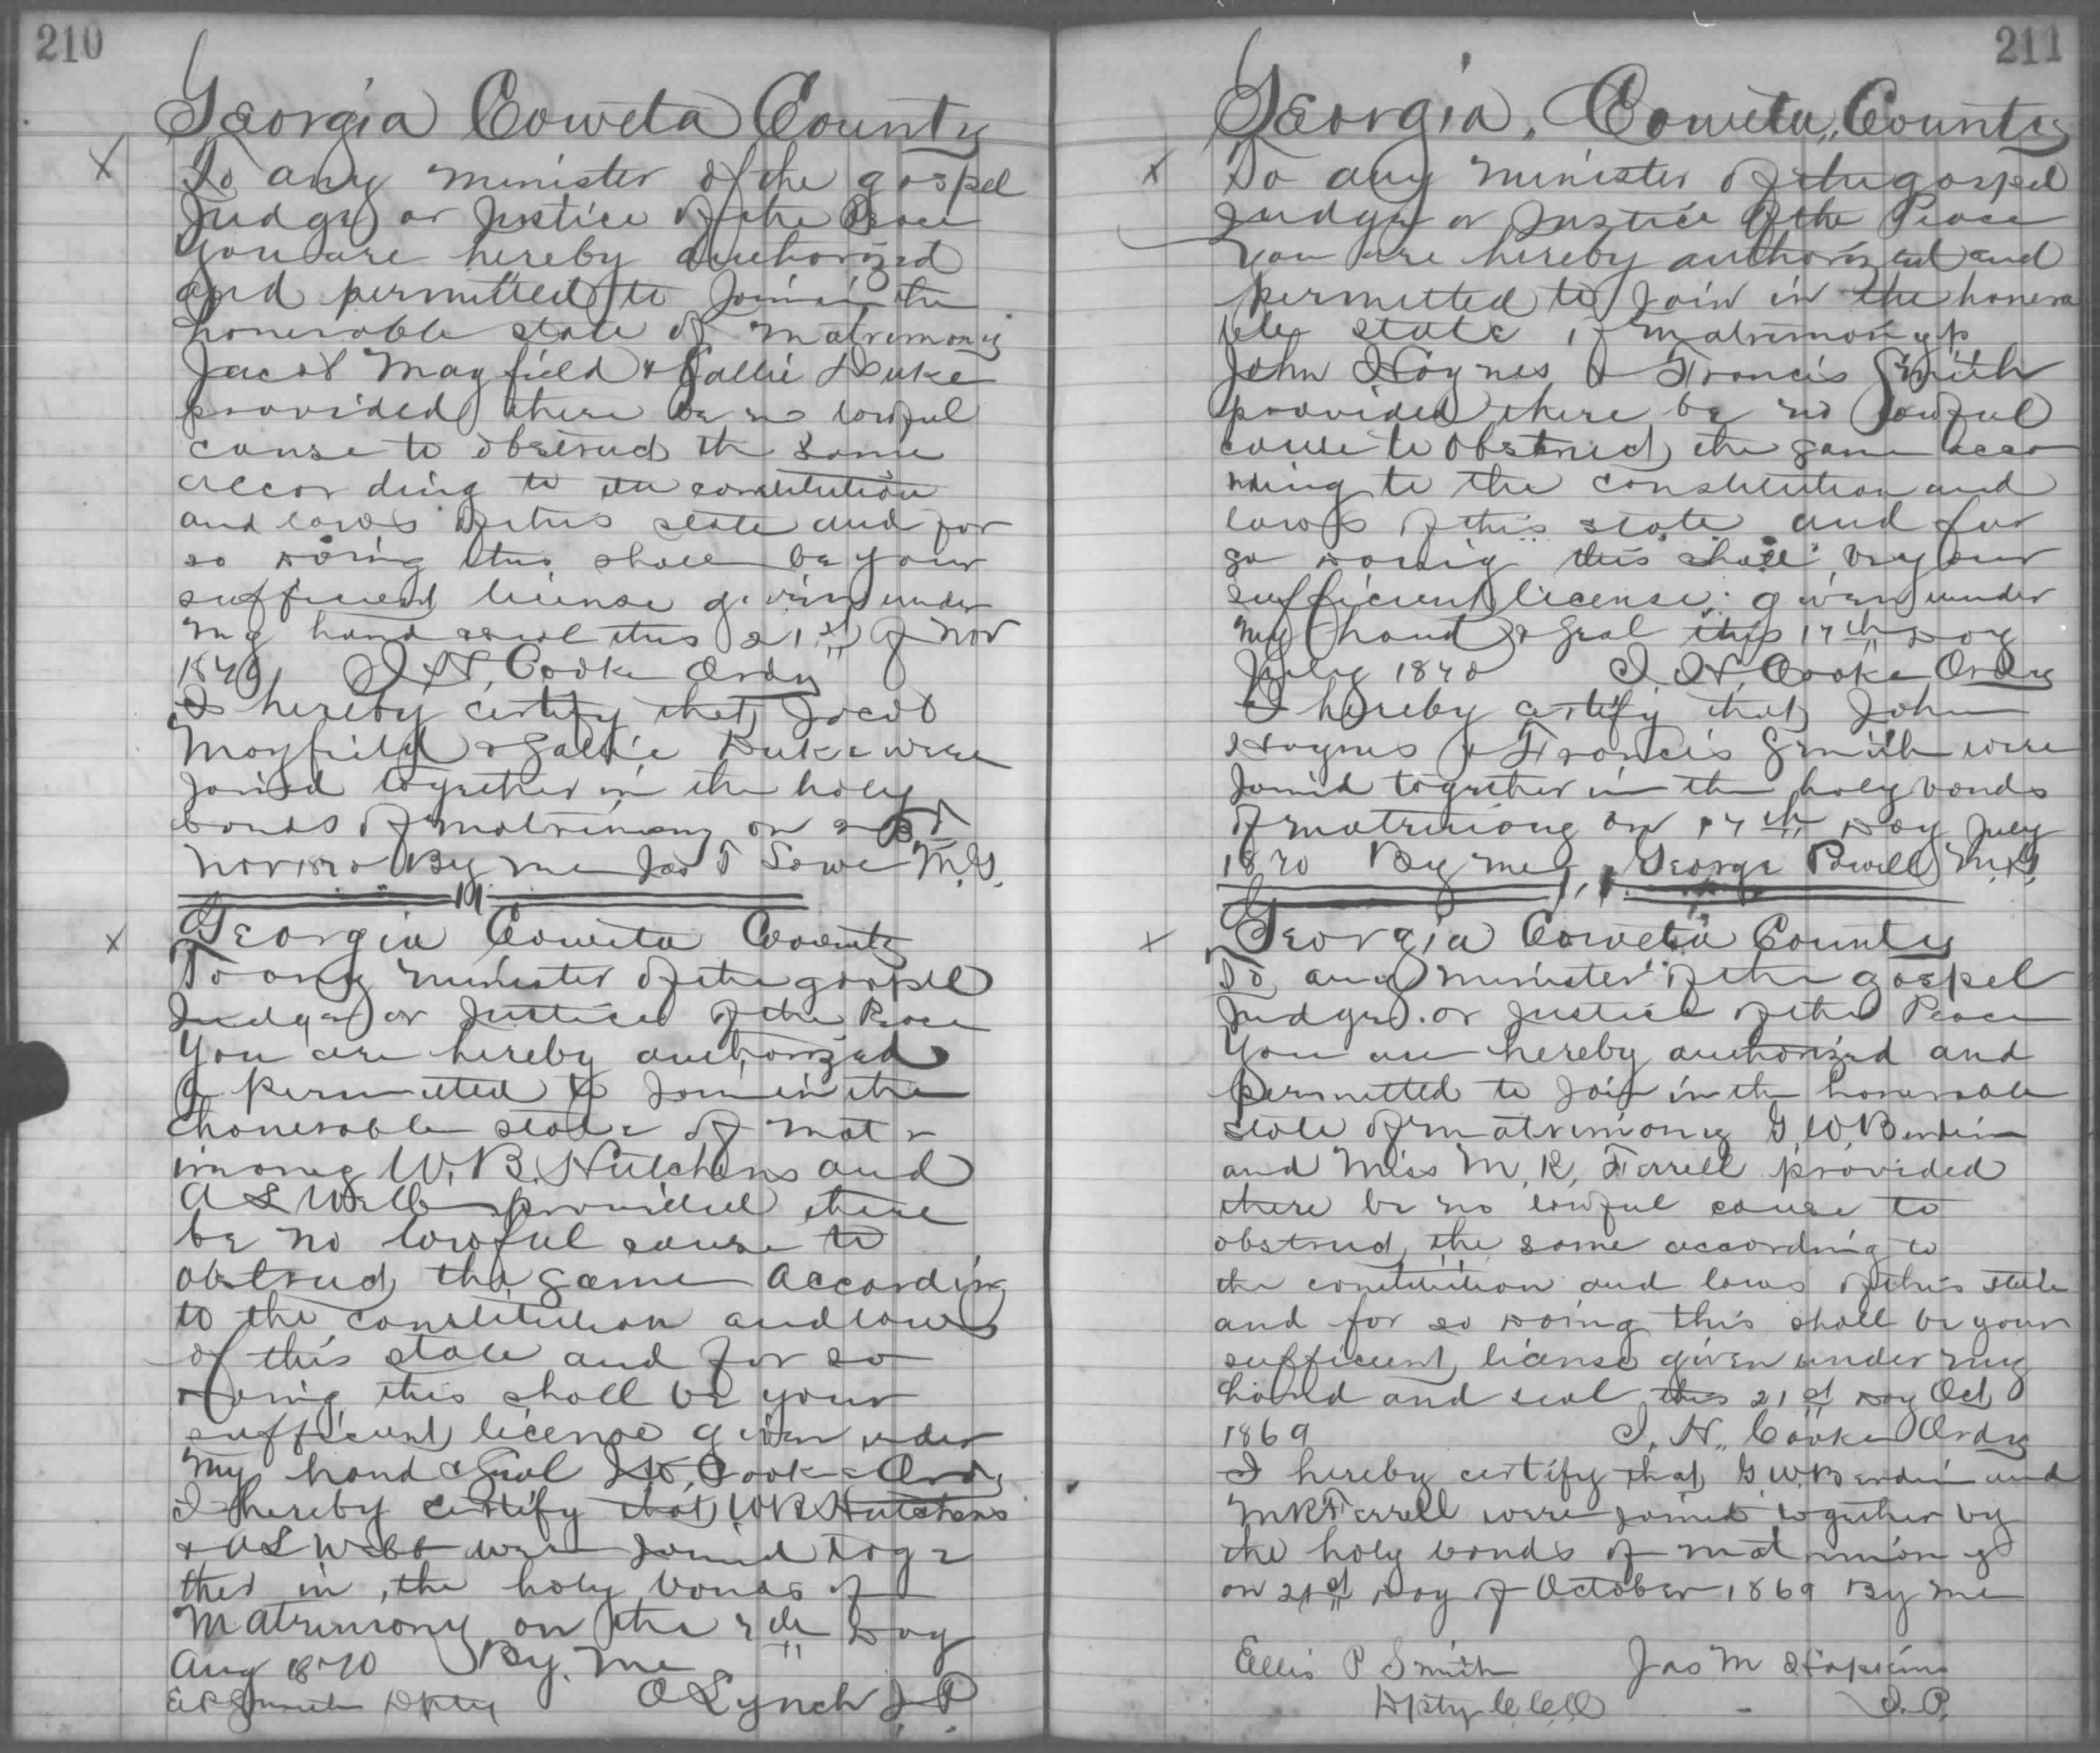 210
Georgia Coweta County
To any minister of the gospel
Judge or Justice of the Peace
You are hereby authorized
and permitted to Join in the
honerable state of matrimony
Jacob Mayfield & Sallie Duke
provided there be no lawful
cause to obstruct the same
according to the constitution
and laws of this state and for
so doing this shall be your
sufficient license given under
my hand & seal this 21st of Nov
1870 J. H. Cooke Ordy
I hereby certify that Jacob
Mayfield & Sallie Duke were
joined together in the holy
bonds of matrimony on
Nov 1870 By me Jas T Lowe M.G.
Georgia Coweta County
To any minister of the gospel
Judge or Justice of the Peace
You are hereby authorized
& permitted to Join in the
honerable state of matr
imony W. B. Hutchens and
A L Webb provided there
be no lawful cause to
obstruct the same according
to the constitution and laws
of this state and for so
doing this shall be your
sufficient license given under
my hand & seal J H Cooke Ordy
I hereby certify that W B Hutchens
& A L Webb were joined toge
ther in the holy bonds of
Matrimony on the day
Aug 1870 By. me
E P Smith Dpty O Lynch J P
211
Georgia, Coweta, County
To any minister of the gospel
Judge or Justice of the Peace
You are hereby authorized and
permitted to Join in the honera
ble state of matrimony
John Haynes & Francis Smith
provided there be no lawful
cause to obstruct the same accor
ding to the constitution and
laws of this state and for
so doing this shall be your
sufficient license given under
my hand & seal this 17th day
July 1870 J. H. Cooke Ordy
I hereby certify that John
Haynes & Francis Smith were
Joined together in the holy bonds
of matrimony on 17th Day July
1870 By me George Powell M.G.
Georgia Coweta County
To any minister of the gospel
Judge or Justice of the Peace
You are hereby authorized and
permitted to Join in the honerable
state of matrimony G. W. Berdein
and Miss M. R. Ferrell provided
there be no lawful cause to
obstruct the same according to
the constitution and laws of this state
and for so doing this shall be your
sufficient license given under my
hand and seal this 21st day Oct
1869 J. H. Cooke Ordy
I hereby certify that G. W. Berdein and
M R Ferrell were joined together by
the holy bonds of matrimony
on 21st Day of October 1869 By me
Ellis P Smith Jas M Hopkins
Dpty C.C.O J.P.